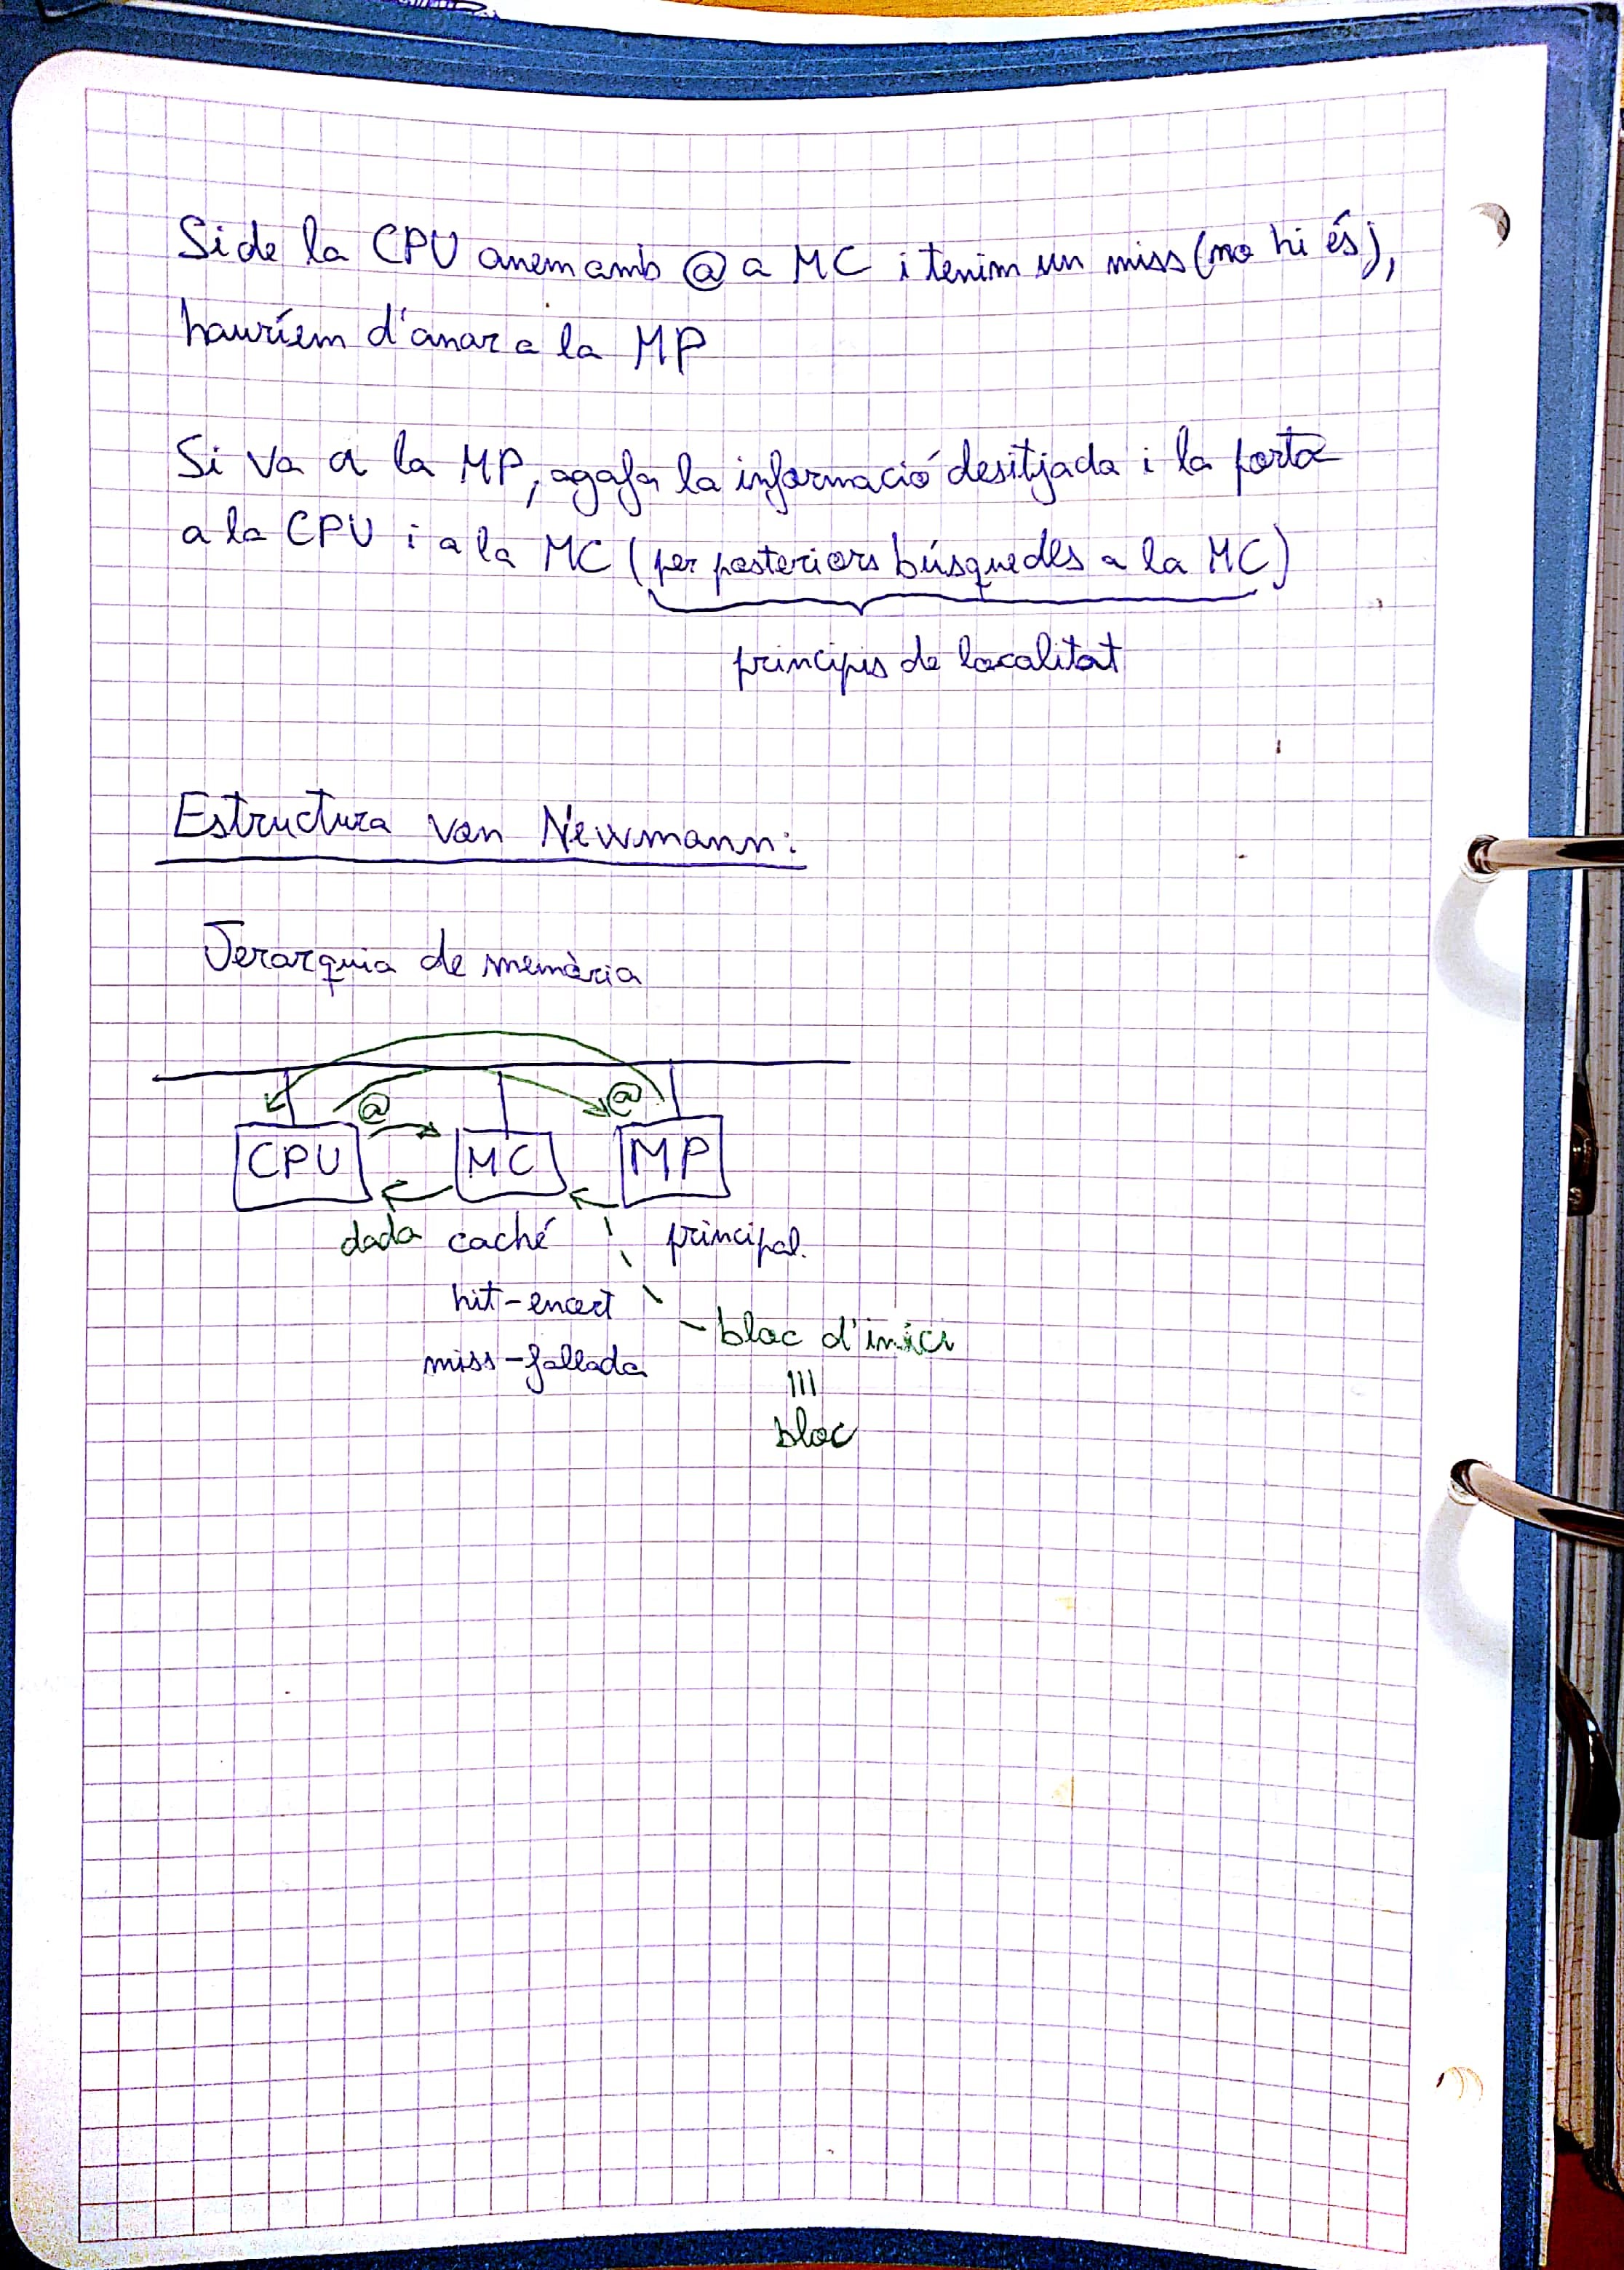 Si de la CPU anem amb @ a MC i tenim un miss (no hi és),
hauríem d'anar a la MP
Si va a la MP, agafa la informació desitjada i la porta
a la CPU i a la MC (per posteriors búsquedes a la MC)
principis de localitat
Estructura von Newmann:
Jerarquia de memòria
@ @
CPU MC MP
dada caché principal.
hit-encert
miss-fallada
bloc d'inici
bloc